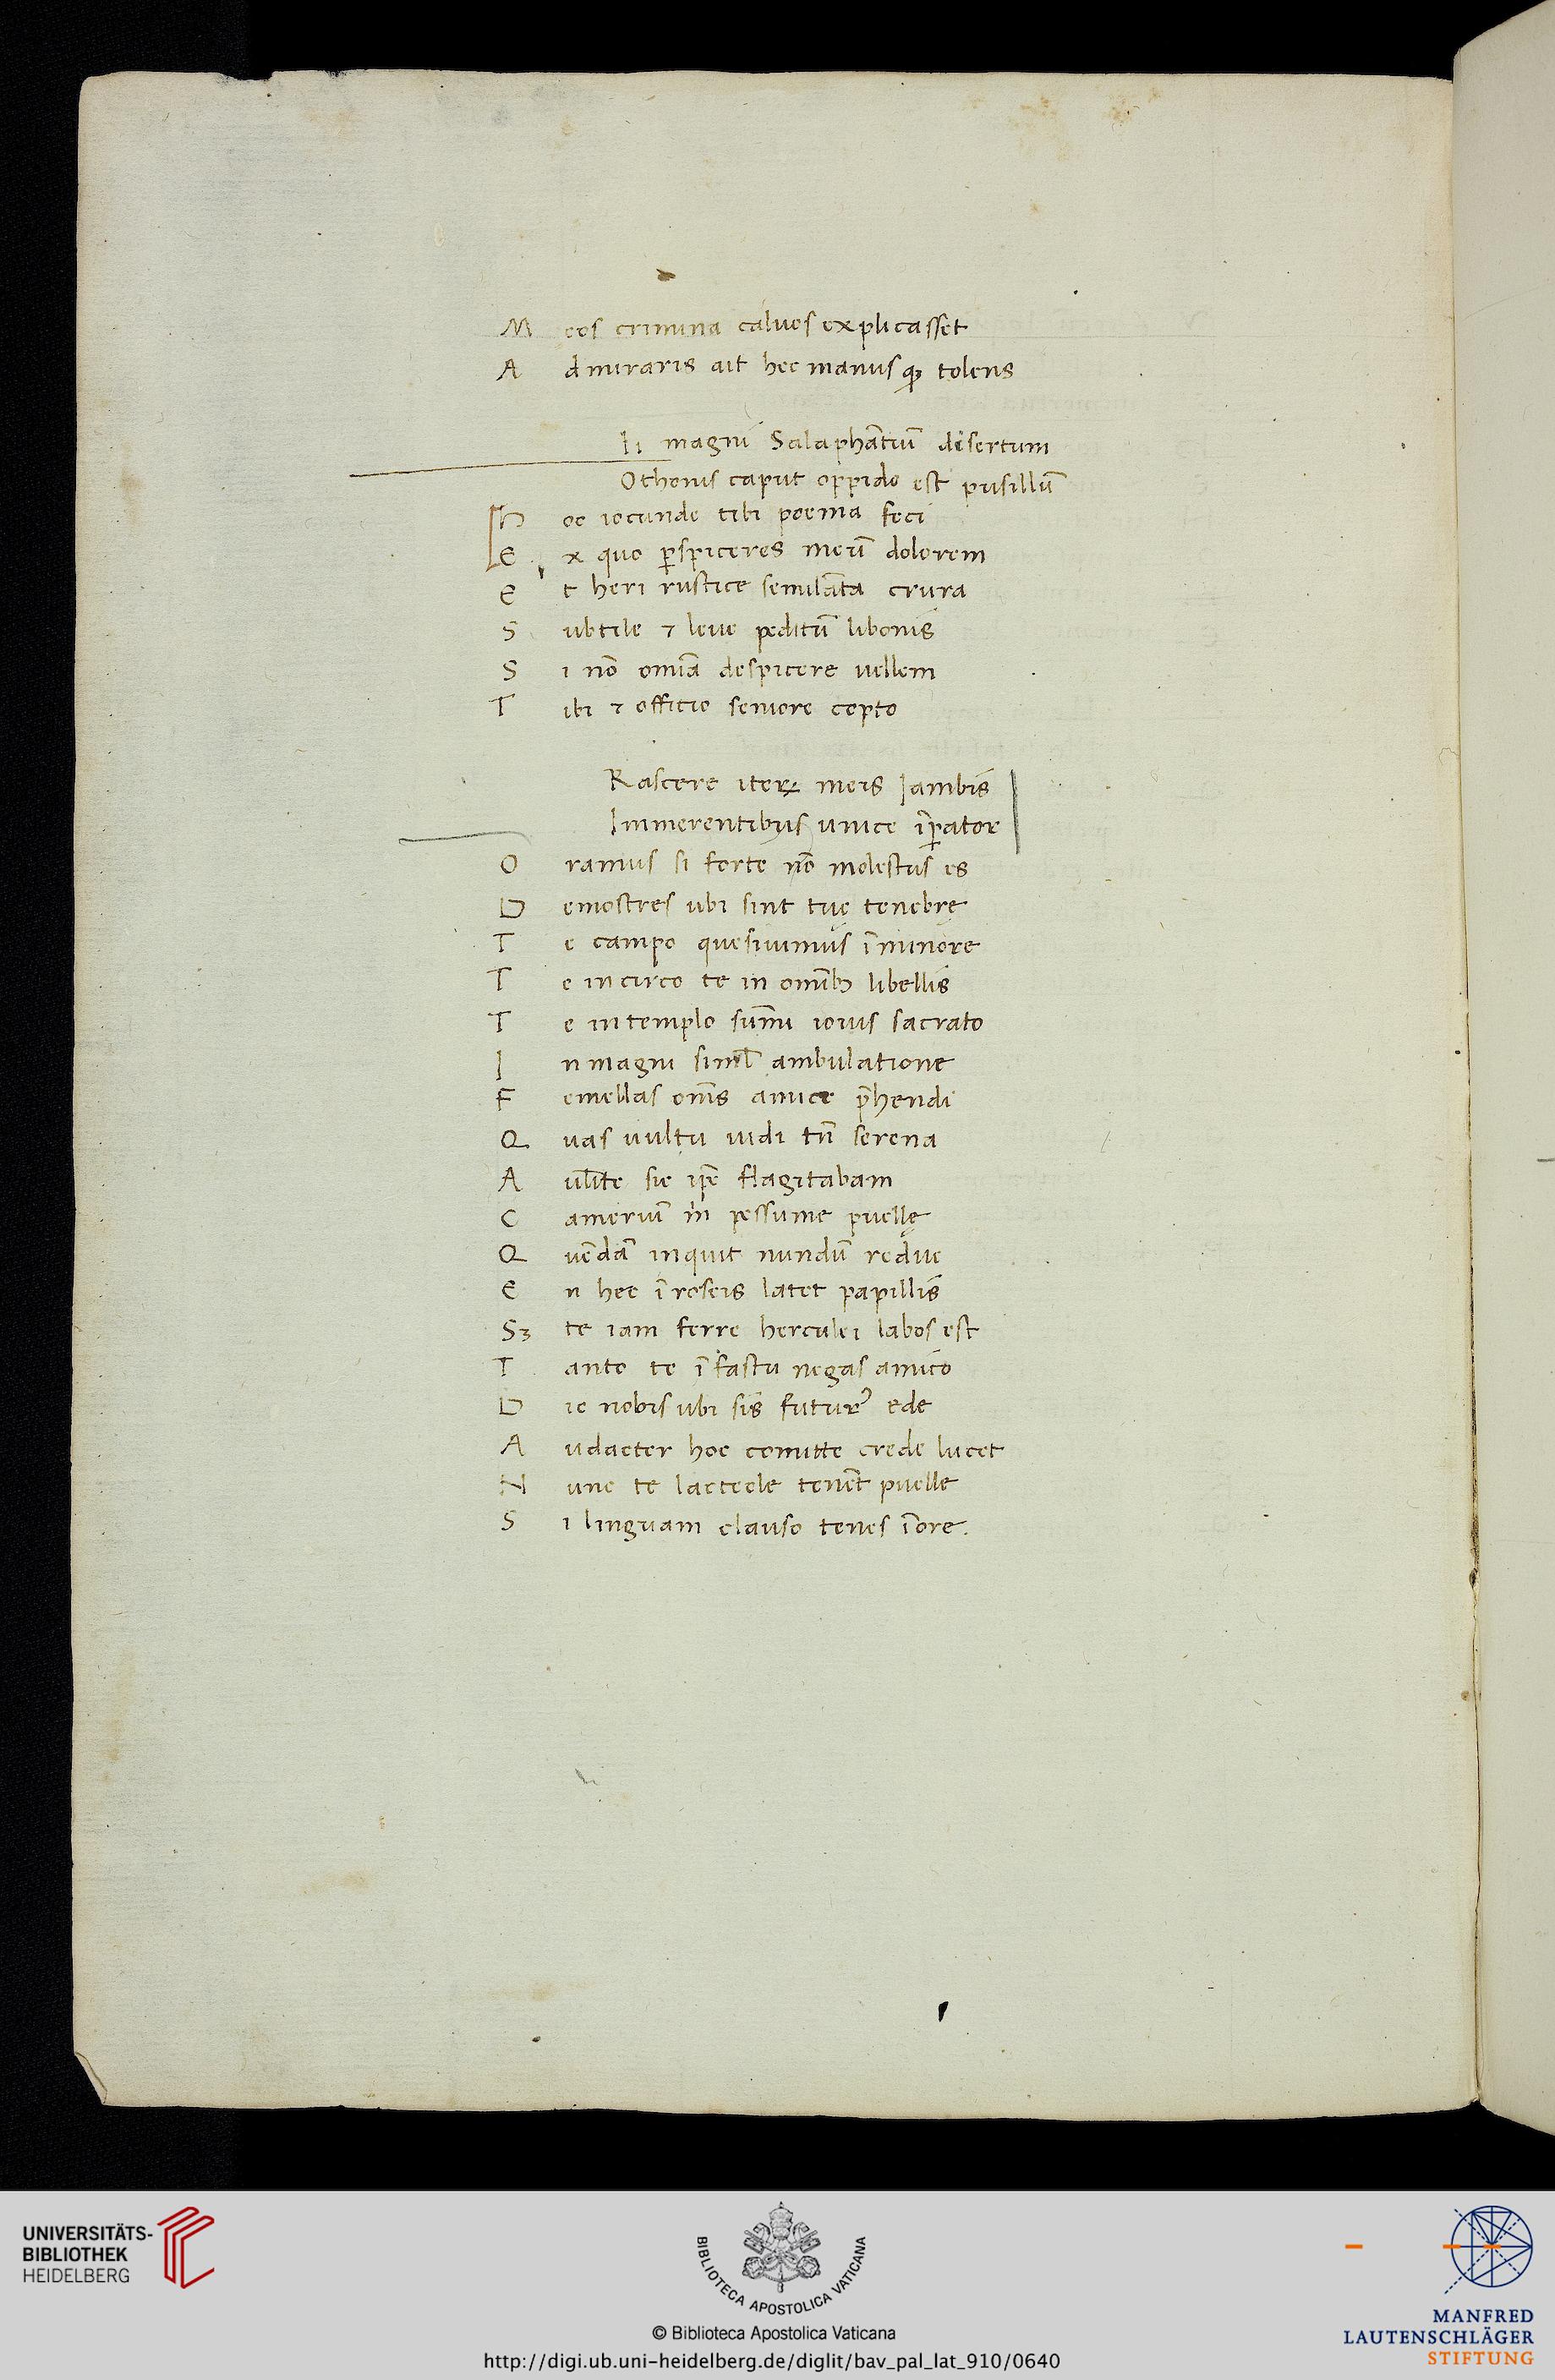 M eos crimina caluos explicasset
A dmiraris ait hec manusqꝫ tolens
Ii magni Salaphātiū desertum
Othonis caput oppido est pusillū
H oc iocunde tibi poema feci
E x quo ꝑspiceres meū dolorem
E t heri rustice semilāta crura
S ubtile ⁊ leue peditū libonis
S i nō omīa despicere uellem
T ibi ⁊ officio seniore copto
Rascere iteꝝ meis Iambis
Immerentibus unice īꝑator
O ramus si forte nō molestus es
D emostres ubi sint tuę tenebrę
T e campo quesiuimus ī minore
T e in circo te in omībꝫ libellis
T e in templo sūmi iouis sacrato
I n magni simł ambulatione
F emellas om̄s amice p̄hendi
Q uas uultu uidi tn̄ serena
A uꝉite sic ip̄e flagitabam
C ameriū m̄ pessime puellę
Q uēdā inquit nundū reduc
E n hec ī roseis latet papillis
Sꝫ te iam ferre herculei labos est
T anto te ī fastu negas amico
D ic nobis ubi sis futurꝰ ede
A udacter hoc comitte crede lucet
N unc te lacteole tenēt puelle
S i linguam clauso tenes ī ore.
UNIVERSITÄTS-
BIBLIOTHEK
HEIDELBERG
BIBLIOTECA APOSTOLICA VATICANA
© Biblioteca Apostolica Vaticana
http://digi.ub.uni-heidelberg.de/diglit/bav_pal_lat_910/0640
MANFRED
LAUTENSCHLÄGER
STIFTUNG